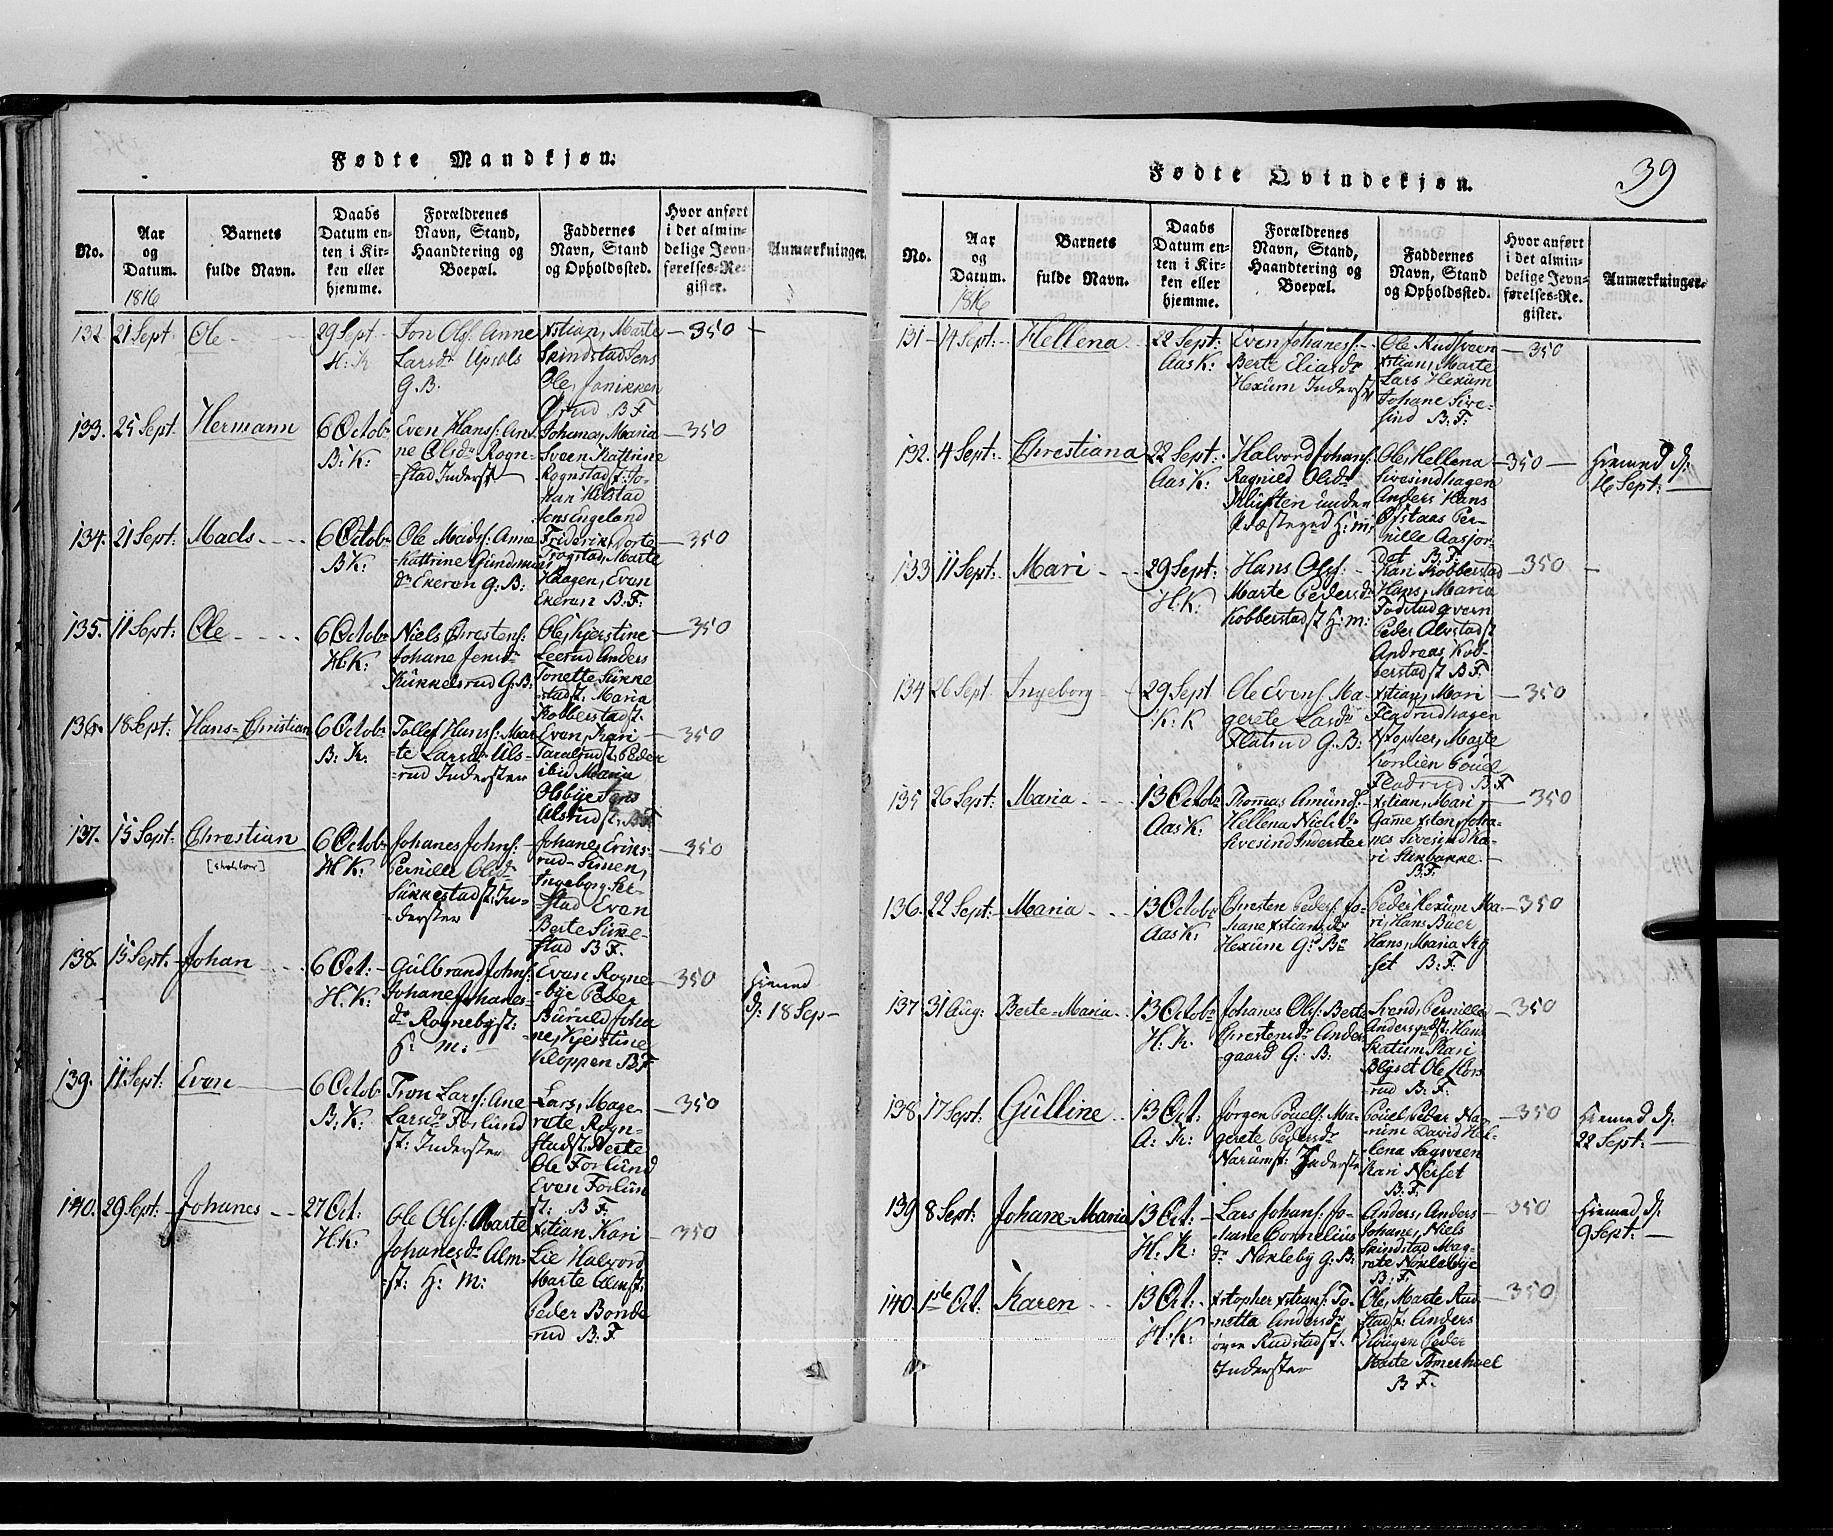 Fødte Mandkjøn.
No.
Aar
og
Datum.
1816
Barnets
fulde Navn.
Daabs
Datum en-
ten i Kir-
ken eller
hjemme.
Forældrenes
Navn, Stand,
Haandtering og
Boepæl.
Faddernes
Navn, Stand
og Opholdssted.
Hvor anført
i det almin-
delige Jevn-
førelses-Re-
gister.
Anmærkninger.
132 21 Sept: Ole
29 Sept
H: K
Jon Ols: Anne
Larsdr Upsols
G. B.
xstian, Marte
Skindstad Jens
Ole, Janikken
B F
350
133. 25 Sept Hermann
6 Octobr
B: K:
Even Hans: An-
ne Olsdr Rogn-
stad Inderst
Johanes, Maria
Sveen Kattrine
Rognstadst: Jo-
han Helstad
Jens Engeland
350
134. 21 Sept: Mads
6 Octobr
B K:
Ole Mads: Anne
Kattrine Gundmun
dr Ekeren G: B:
Friderik, Dorte
Trogstad, Marte
Haagen, Even
Ekeren B: F:
350
135. 11 Sept: Ole
6 Octobr
H: K:
Niels Chrestens:
Johane Jensdr
Kükkelsrud G: B:
Ole, Kjerstine
Leerud Anders
Tonette Sükke
stadst: Maria
Kobberstadst:
350
136. 18 Sept: Hans-Christian
6 Octobr
B: K:
Tollef Hans: Mar
-te Larsdr Uls-
-rud Inderster
Even, Kari
Taralrudst: Peder
ibid Maria
Olsbye Jens
Alsrudst: B: F:
350
137. 15 Sept: Chrestian
6 Octobr
H: K:
Johanes Johns:
Pernille Olsdr
Sükkestadst: In-
-derster
Johanes Eriks-
rud Simen,
Ingeborg Set-
-stad Even
Berte Sükke-
stad B F.
350
138. 15 Sept: Johan
6 Oct:
H. K:
Gülbrand Johns:
Johane Johanes-
dr Rognebyst:
H: m:
Even Rogne-
-bye Peder
Büruld Joha
ne, Kjerstine
Kloppen B F
350
hiemed
d: 18 Sep
139. 11 Sept: Even
6 Octob
B. K:
Tron Lars: Ane
Larsdr Forlund
st: Inderster
Lars, Mage-
rete Rogn-
stadst: Berte
Ole Forlünd
Even Forlün
st: B F.
350
140. 29 Sept: Johanes
27 Oct:
H: K:
Ole Ols: Marte
Johanesdr Alm-
-st: H: M:
xstian Kari
Lie Halvord
Marte Almst:
Peder Bonde
-rud B: F.
350
Fødte Qvindekjøn.
39
No.
Aar
og
Datum.
1816
Barnets
fulde Navn.
Daabs
Datum en-
ten i Kir-
ken eller
hjemme.
Forældrenes
Navn, Stand,
Haandtering og
Boepæl.
Faddernes
Navn, Stand
og Opholdssted.
Hvor anført
i det almin-
delige Jevn-
førelses-Re-
gister.
Anmærkninger.
131 14 Sept: Hellena
22 Sept:
Aas K:
Even Johanes:
Berte Eliasdr
Hexüm Inderst
Ole Rudsveen
xstian, Marte
Lars Hexüm
Johane Sive-
sind B: F:
350
132. 4 Sept: Chrestiana
22 Sept:
Aas K:
Halvord Johans:
Ragnild Olsdr
Kluften under
Præstegrd H: m:
Ole, Hellena
Sivesindhagen
Anders Hans
Øfstaas Per-
nille Aasjor-
det B. F.
350
hiemed d:
16 Sept:
133 11 Sept: Mari
29 Sept:
H: K:
Hans Ols:
Marte Pedersdr
Kobberstadst H: m:
Kari Kobberstad
Hans, Maria
Fodstadqvern
Peder Alvstadst
Andreas Kob-
berstadst B F.
350
134 26 Sept. Ingeborg
29 Sept
K: K
Ole Evens: Ma-
gerete Larsdr
Fladrud G: B:
xstian, Mari
Fladrudhagen
xstopher, Marte
Korslien Pouel
Fladrud B: F
350
135 26 Sept: Maria
13 Octobr
Aas K:
Thomas Amünds:
Hellena Nielsdr
Sivesind Inderster
xstian, Mari
Game xston, Joha-
nes Sivesind Ka-
ri Stenbakke
B: F.
350
136. 22 Sept: Maria
13 Octobr
Aas K:
Chresten Peders: Jo-
hane xstiansdr
Hexüm Gr Br
Peder Hexüm Ma-
ri, Hans Büer
Hans, Maria
set B: F.
350
137 31 Aug: Berte-Maria
13 Octobr
H: K.
Johanes Ols: Berte
Chrestensdr Ander
-gaard G: B.
Svend, Pernille
Andersrudst: Hans
Skattum Kari
Blilset Ole
rud B. F.
350
138. 17 Sept: Gülline
13 Oct:
A: K:
Jørgen Pouels: Ma-
gerete Pedersdr
Narümst: Inderste
Pouel, Peder Na-
rüm David Hel-
-lena Sagsveen
Kari Nerset
B: F.
350
hiemed d:
22 Sept:
139 8 Sept: Johane-Maria
13 Oct:
H: K:
Lars Johans: Jo-
hane Cornelius
dr Nøkleby G: B:
Anders, Anders
Johane, Niels
Skindstad Mag-
rete Nøklebye
B: F.
350
hiemed d:
9 Sept:
140. 1ste Oct. Karen
13 Oct:
H: K:
xstopher xstians: To-
netta Andersdr
øvre Rudstadst.
Inderster
Ole, Marte Rud-
stadst: Anders
Haugen Peder
Marte Tømerhoel
B F.
350